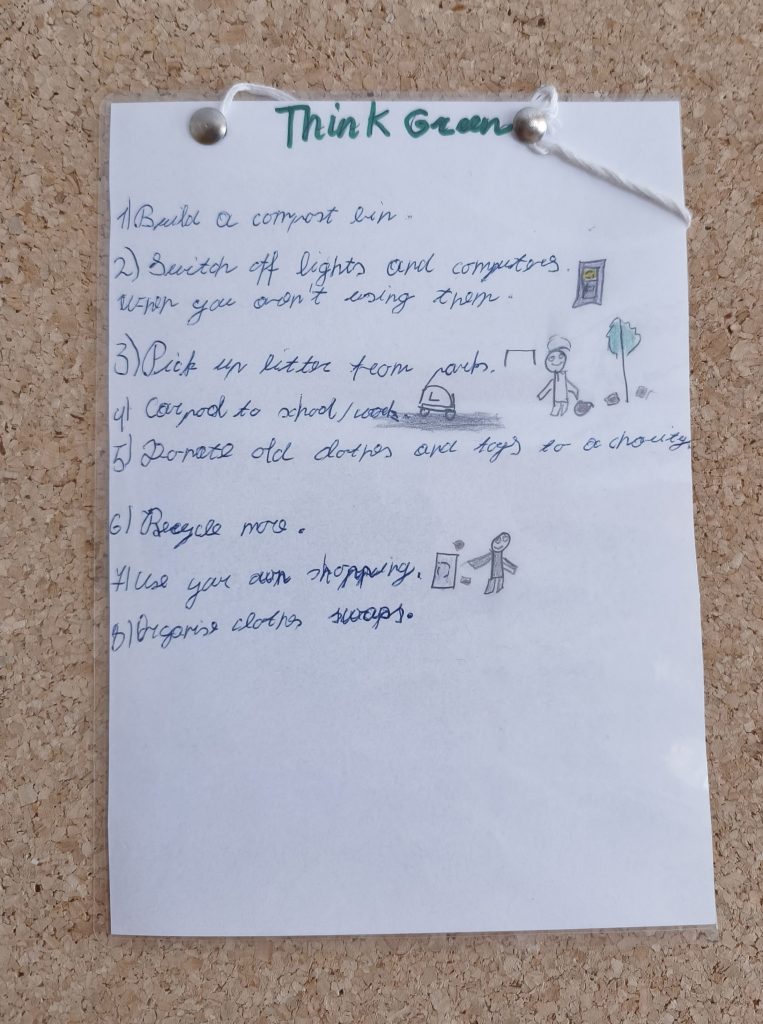 Think Green
1) Build a compost bin.
2) Switch off lights and computers.
when you aren't using them.
3) Pick up litter from parks.
4) Carpool to school/work.
L
5) Donate old clothes and toys to a charity.
6) Recycle more.
7) Use your own shopping.
8) Organise clothes swaps.